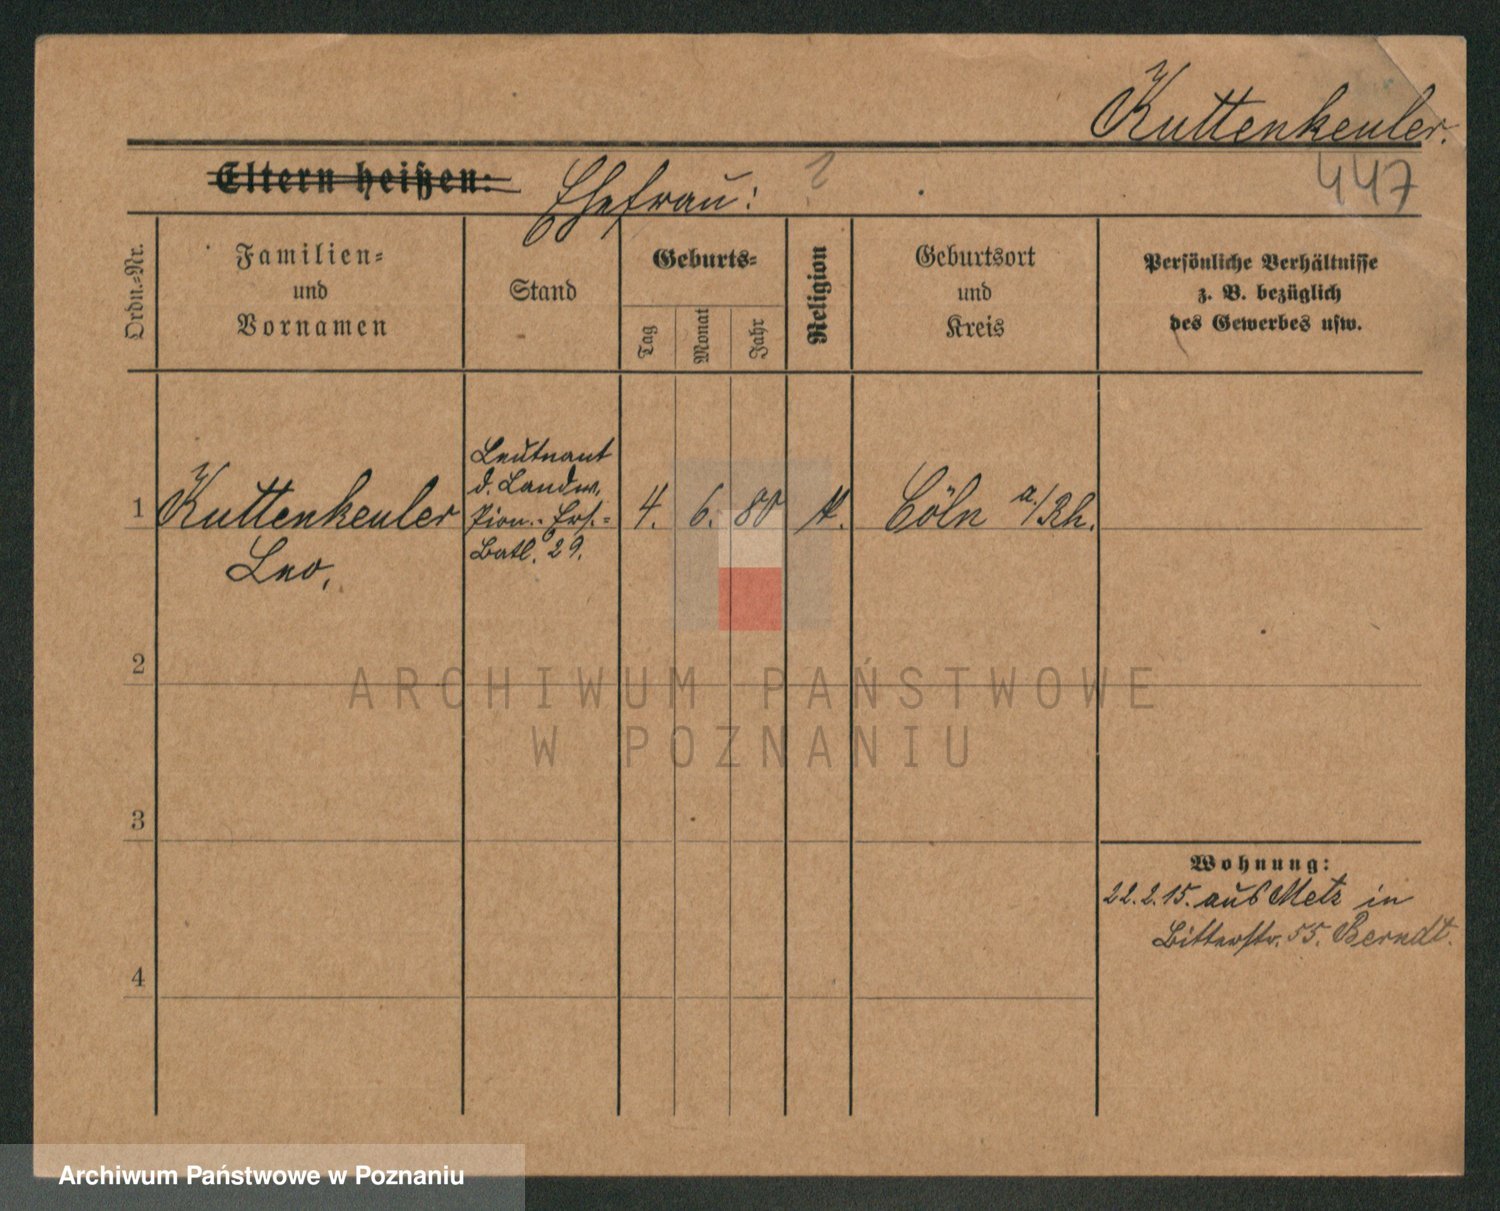 Kuttenkeuler.
447
Eltern heißen: Ehefrau: ?
Ordn.-Nr.
Familien-
und
Vornamen
Stand
Geburts-
Tag
Monat
Jahr
Religion
Geburtsort
und
Kreis
Persönliche Verhältnisse
z. B. bezüglich
des Gewerbes usw.
1
Kuttenkeuler
Leo,
Leutnant
d. Landw.
Pion.-Ers.-
Batl. 29.
4. 6. 80
K.
Cöln a./Rh.
2
3
4
Wohnung:
22.2.15. aus Metz in
Bitterstr. 55. Berndt.
ARCHIWUM PAŃSTWOWE
W POZNANIU
Archiwum Państwowe w Poznaniu